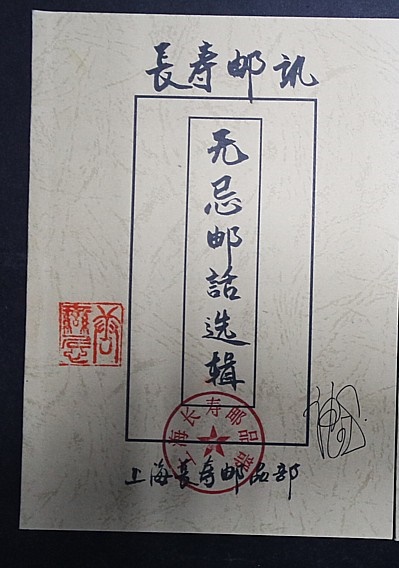 長寿邮讯
无忌邮話选辑
上海长寿邮品部
上海長寿邮品部